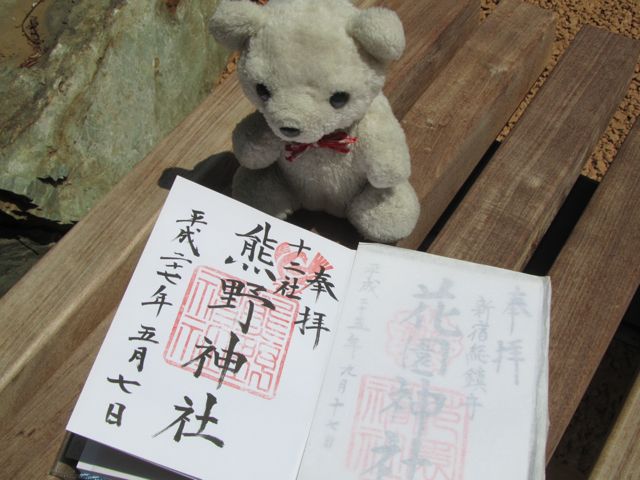 奉拝
十二社
熊野神社
平成二十七年五月七日
奉拝
新宿総鎮守
花園神社
平成二十五年九月十七日